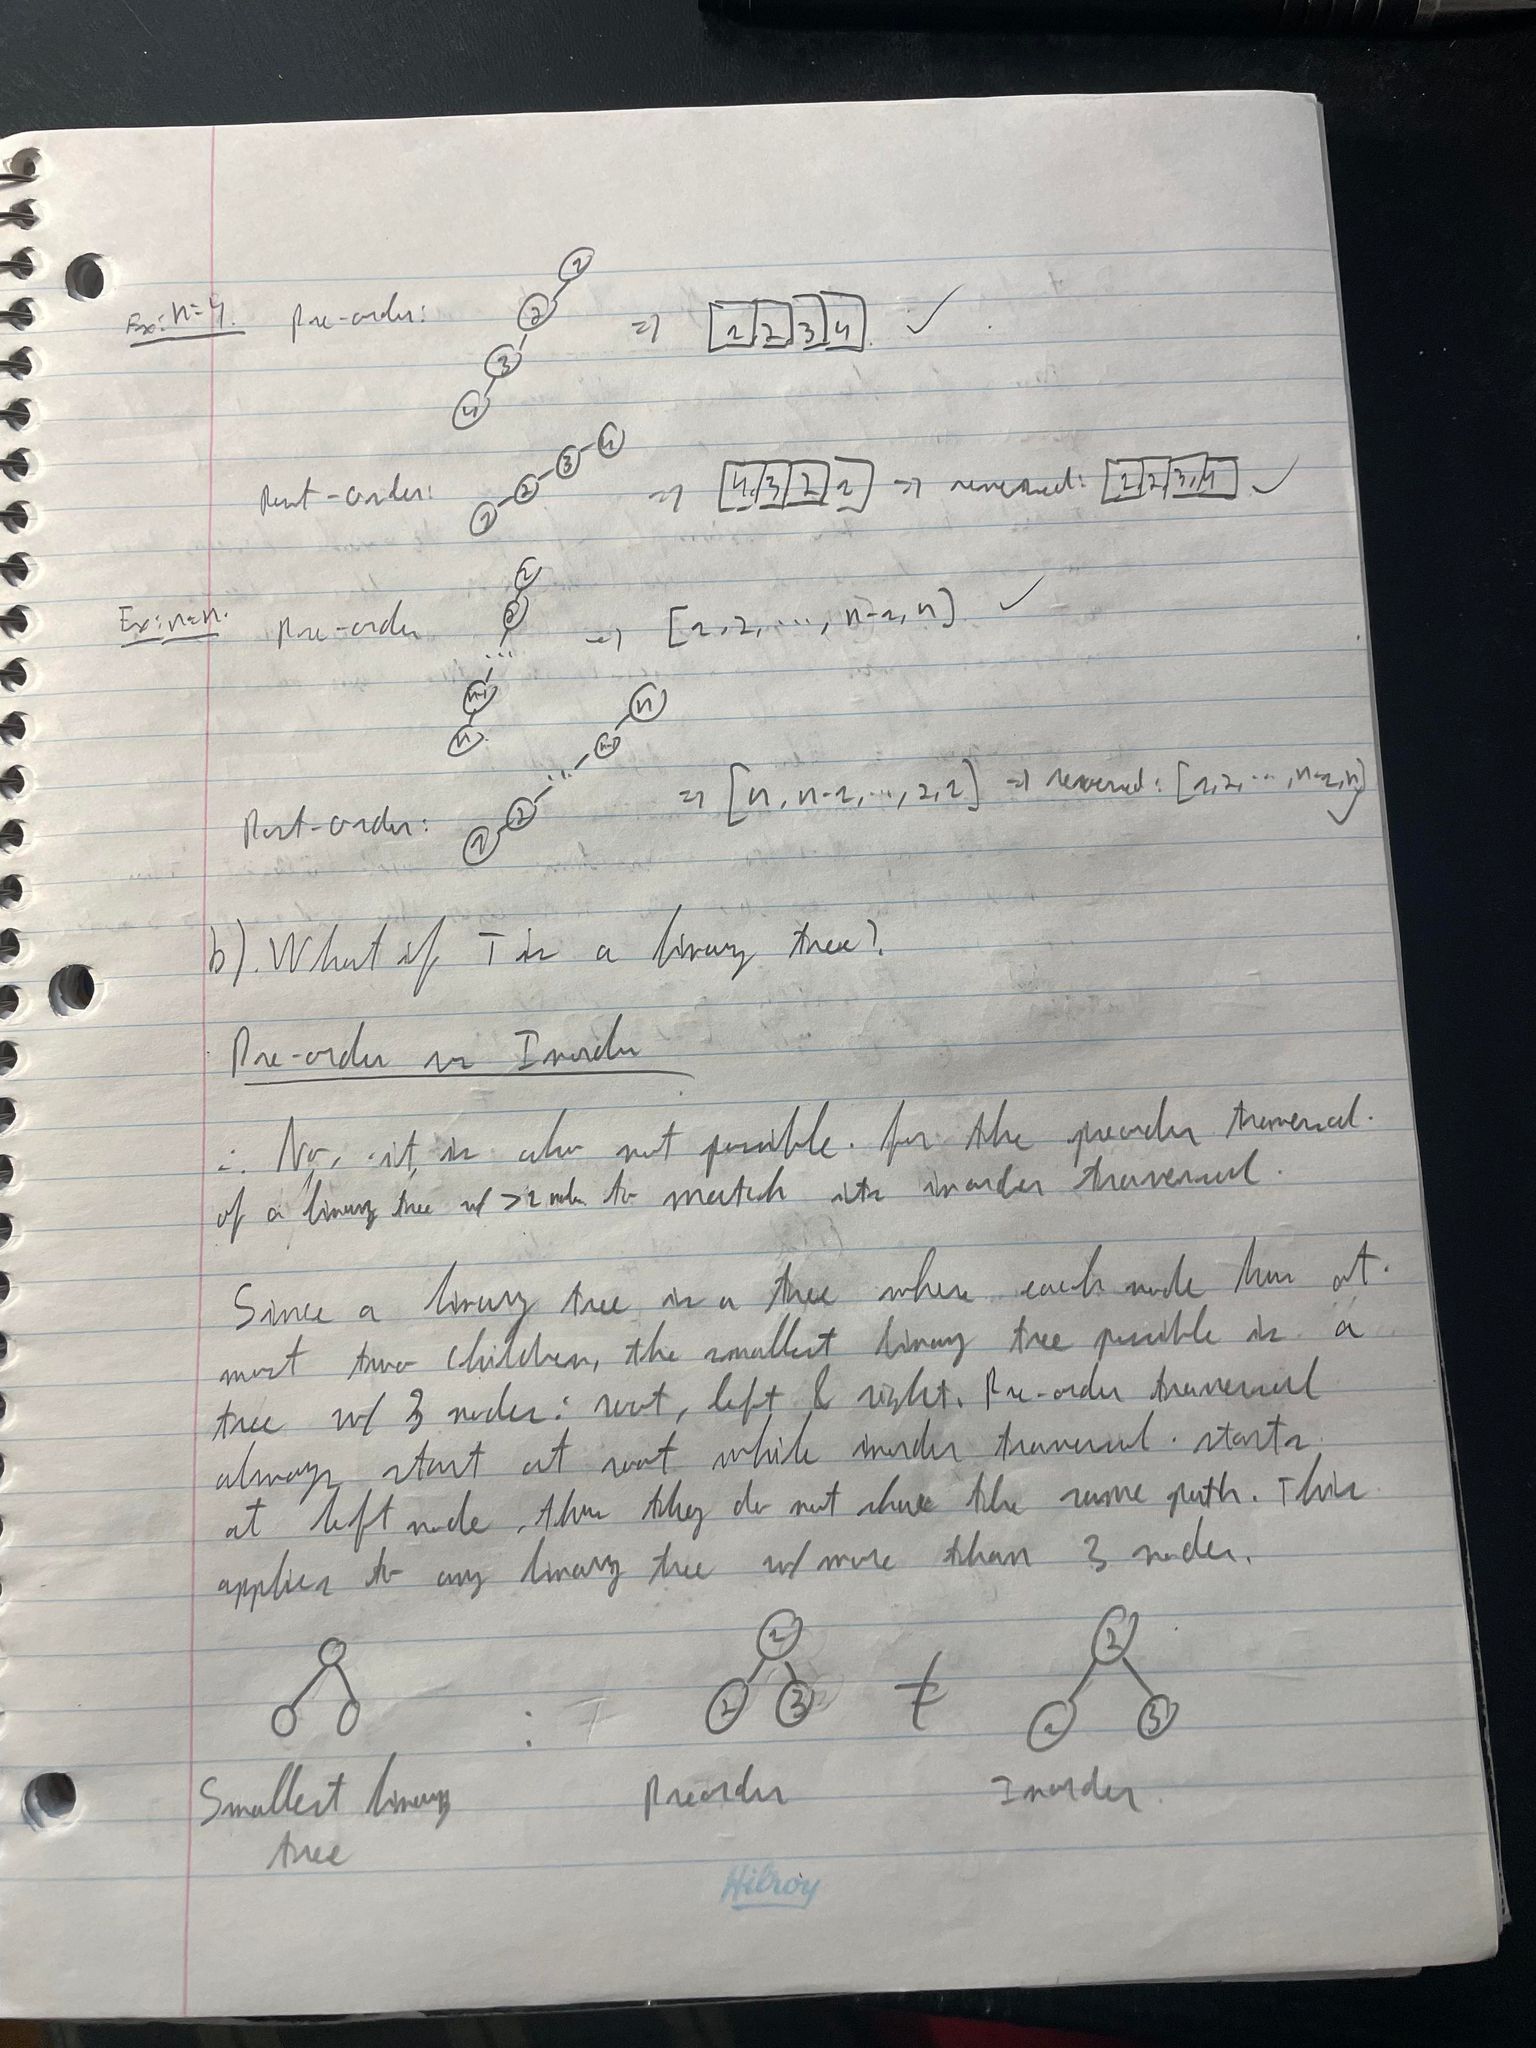 Ex: n=4. Pre-order: 1 2 3 4 => [1|2|3|4] ✓
Post-order: 1 2 3 4 => [4|3|2|1] => reversed: [1|2|3|4] ✓
Ex: n=n. Pre-order 1 2 ... n-1 n => [1, 2, ..., n-1, n] ✓
Post-order: 1 2 ... n-1 n => [n, n-1, ..., 2, 1] => reversed: [1, 2, ..., n-1, n] ✓
b). What if T is a binary tree?
Pre-order vs Inorder
∴ No, it is also not possible for the preorder traversal
of a binary tree w/ >1 node to match its inorder traversal.
Since a binary tree is a tree where each node has at
most two children, the smallest binary tree possible is a
tree w/ 3 nodes: root, left & right. Pre-order traversal
always start at root while inorder traversal starts
at left node, thus they do not share the same path. This
applies to any binary tree w/ more than 3 nodes.
: 1 2 3 ≠ 2 1 3
Smallest binary Preorder Inorder
tree
Hilroy